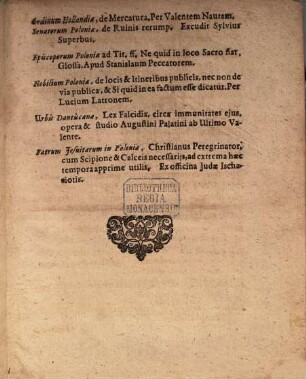 Ordinum Hollandiæ, de Mercatura, Per Valentem Nautam.
Senatorum Poloniæ, de Ruinis rerump, Excudit Sylvius
Superbus,
Episcoporum Poloniæ ad Tit. ff, Ne quid in loco Sacro fiat,
Glossa. Apud Stanislaum Peccatorem.
Nobilium Poloniæ, de locis & Itineribus publicis, nec non de
via publica, & Si quid in ea factum esse dicatur. Per
Lucium Latronem.
Urbis Dantiscanæ, Lex Falcidix, circa immunitates ejus,
opera & studio Augustini Palatini ab Ultimo Va-
lente.
Patrum Jesuitarum in Polonia, Christianus Peregrinator,
cum Scipione & Calceis necessariis, ad extrema hæc
tempora apprime utilis, Ex officina Judæ Ischa-
riotis.
BIBLIOTHECA
REGIA
MONACENSIS.